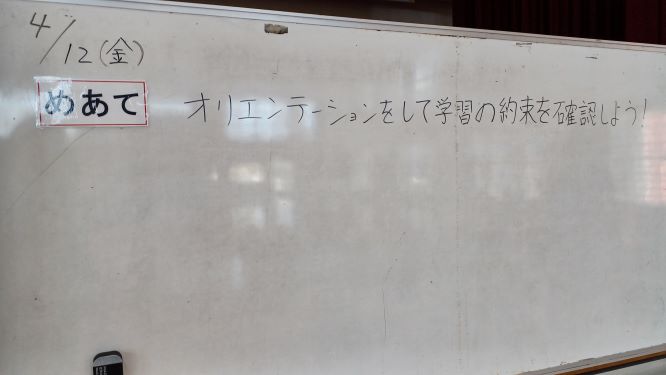 4/12(金)
めあて オリエンテーションをして学習の約束を確認しよう!